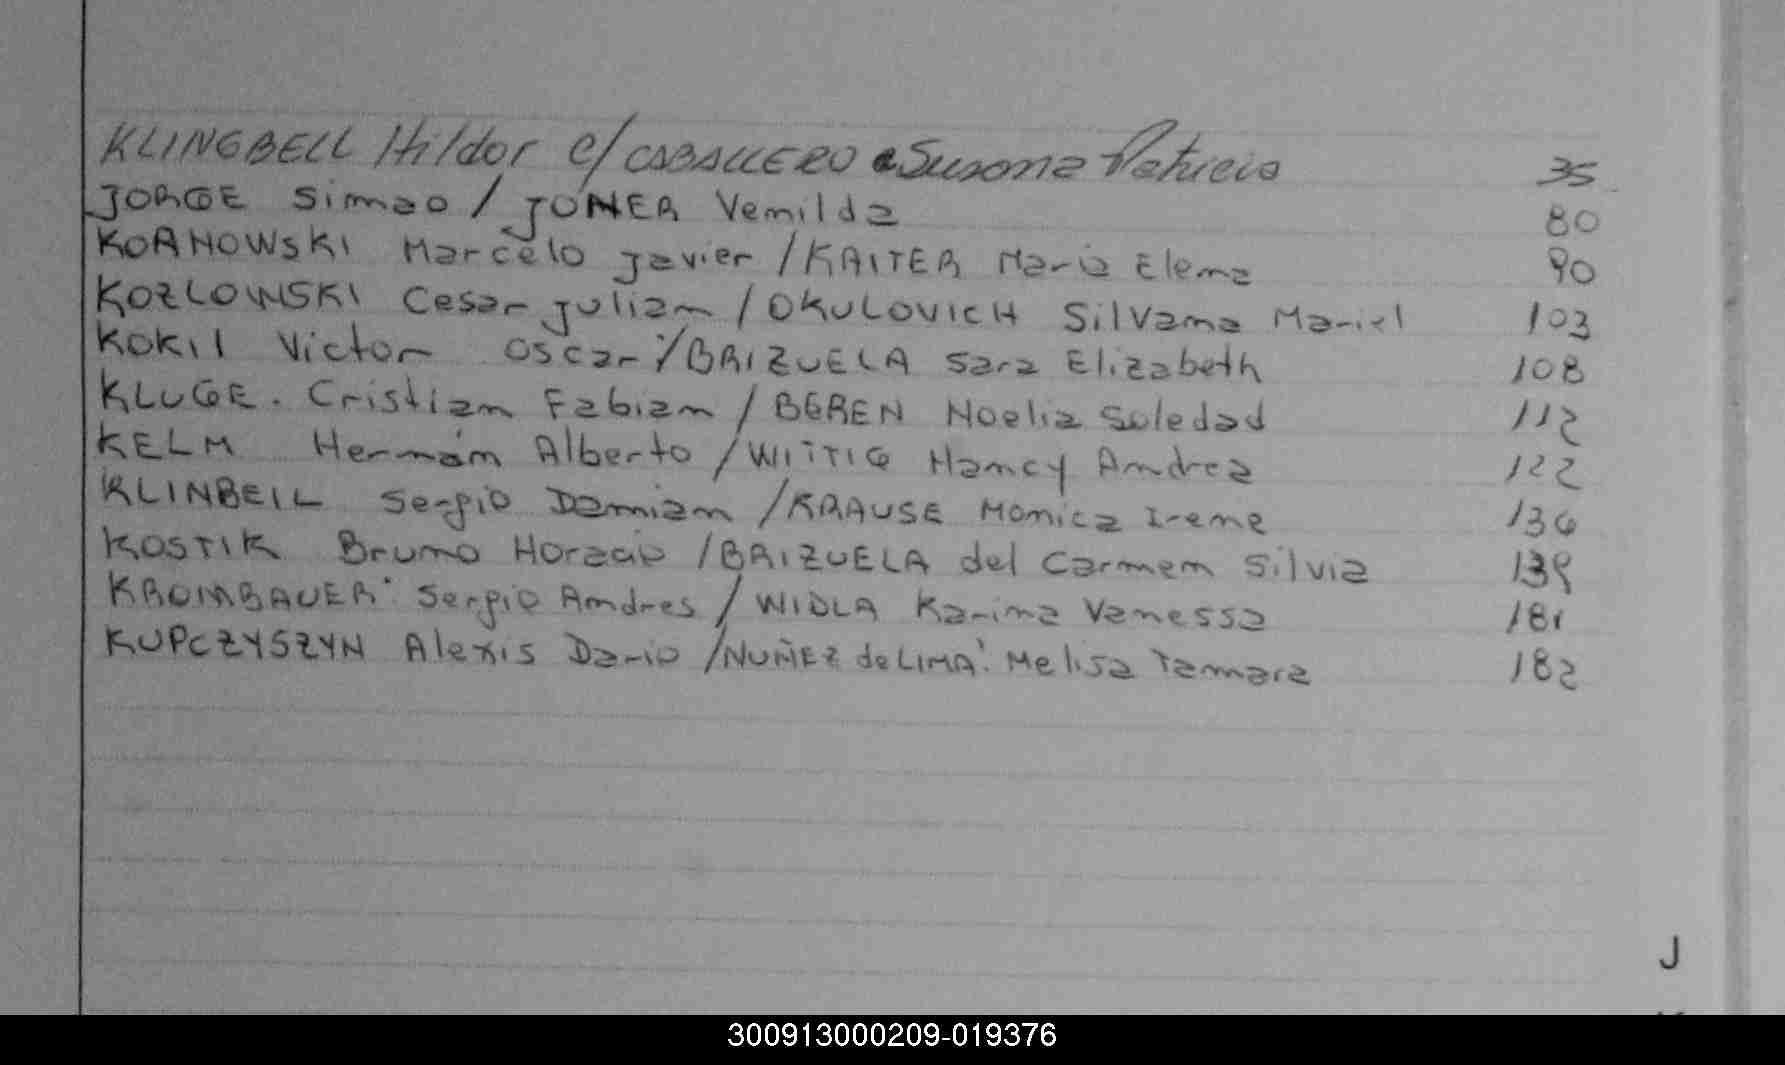 KLINGBELL Hildor c/ CABALLERO Susana Patricia 35
JORGE Simao / JONER Vemilda 80
KORNOWSKI Marcelo Javier / KAITER Maria Elena 90
KOZLOWSKI Cesar Julian / OKULOVICH Silvana Mariel 103
KOKIL Victor Oscar / BRIZUELA Sara Elizabeth 108
KLUGE. Cristian Fabian / BEREN Noelia Soledad 112
KELM Hernán Alberto / WIITIG Nancy Andrea 122
KLINBEIL Sergio Damian / KRAUSE Monica Irene 136
KOSTIK Bruno Horacio / BRIZUELA del Carmen Silvia 139
KROMBAUER Sergio Andres / WIDLA Karina Vanessa 181
KUPCZYSZYN Alexis Dario / NUÑEZ de LIMA Melisa Tamara 182
J
300913000209-019376